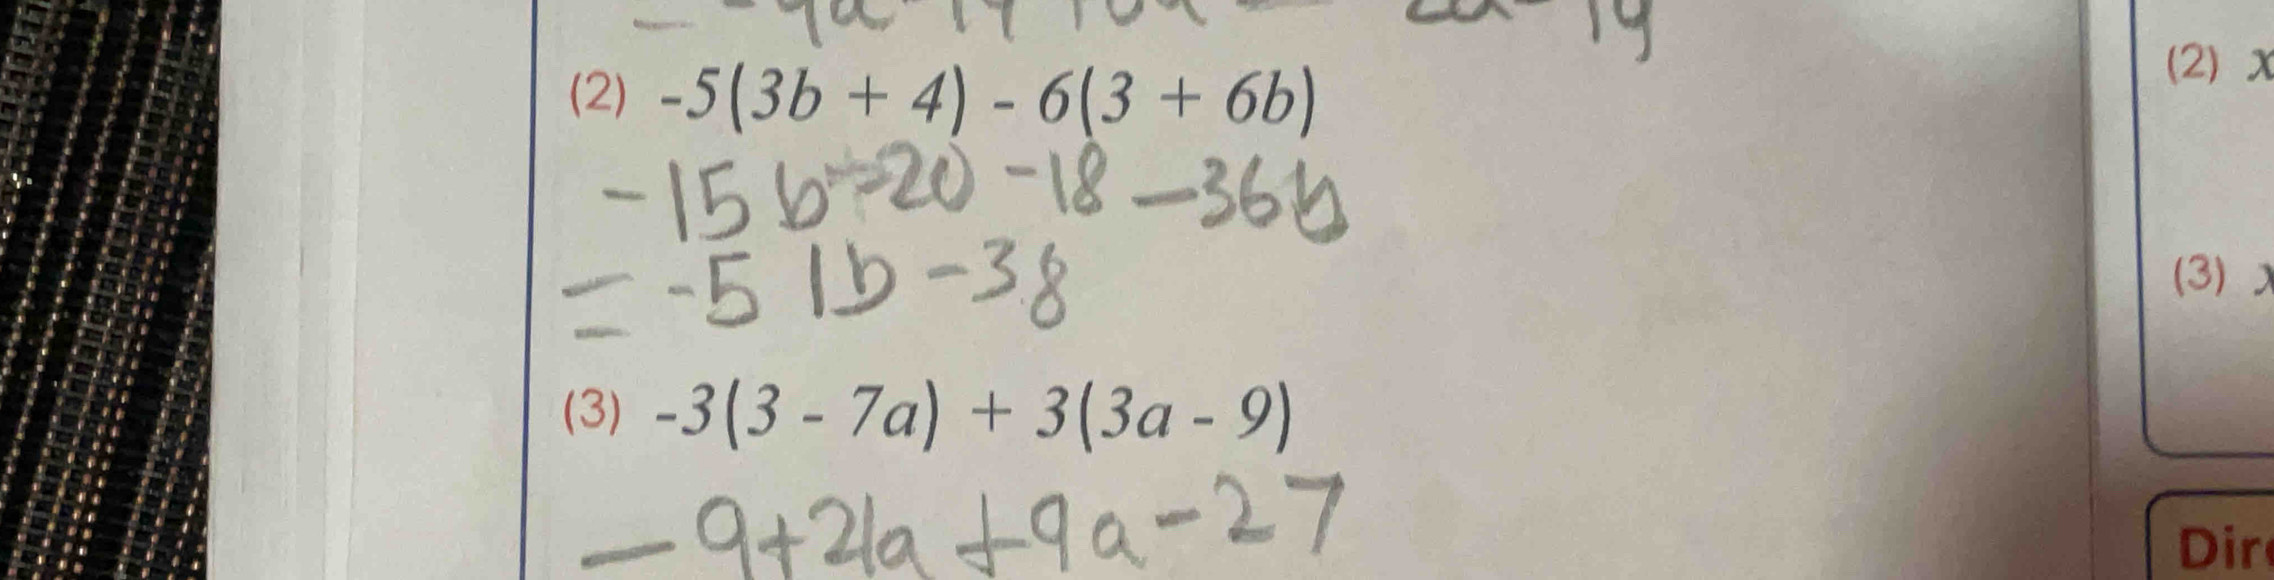 (2) -5(3b + 4) - 6(3 + 6b)
-15b-20-18-36b
= -51b-38
(3) -3(3 - 7a) + 3(3a - 9)
-9+21a+9a-27
(2) x
(3)
Dir